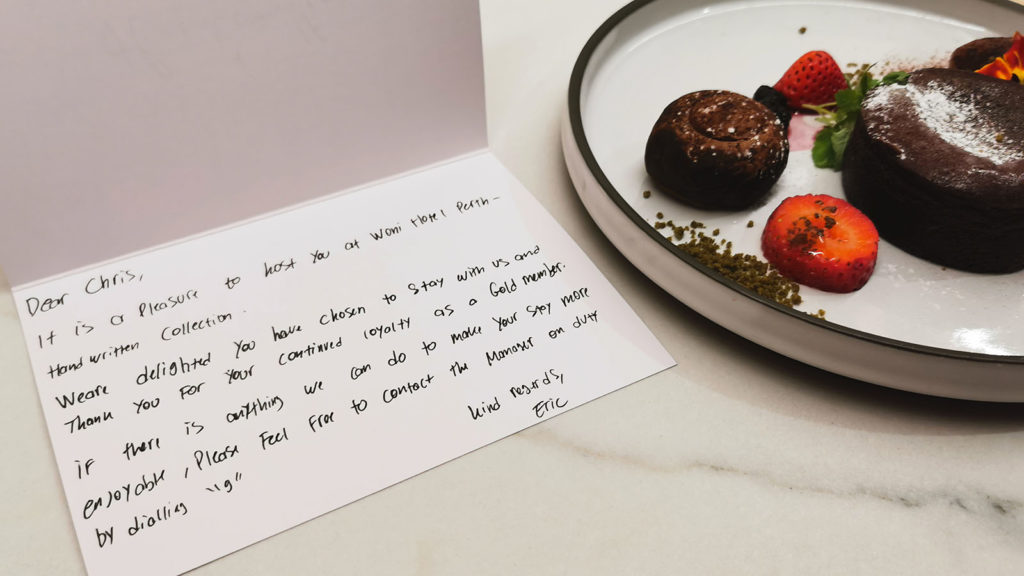 Dear Chris,
It is a Pleasure to host you at Woni Hotel Perth -
Handwritten Collection.
Weare delighted you have chosen to stay with us and
Thank you For your continued loyalty as a Gold member.
if there is anything we can do to make your stay more
enjoyable, Please Feel Free to contact the Manager on duty
by dialling "9"
kind regards,
Eric